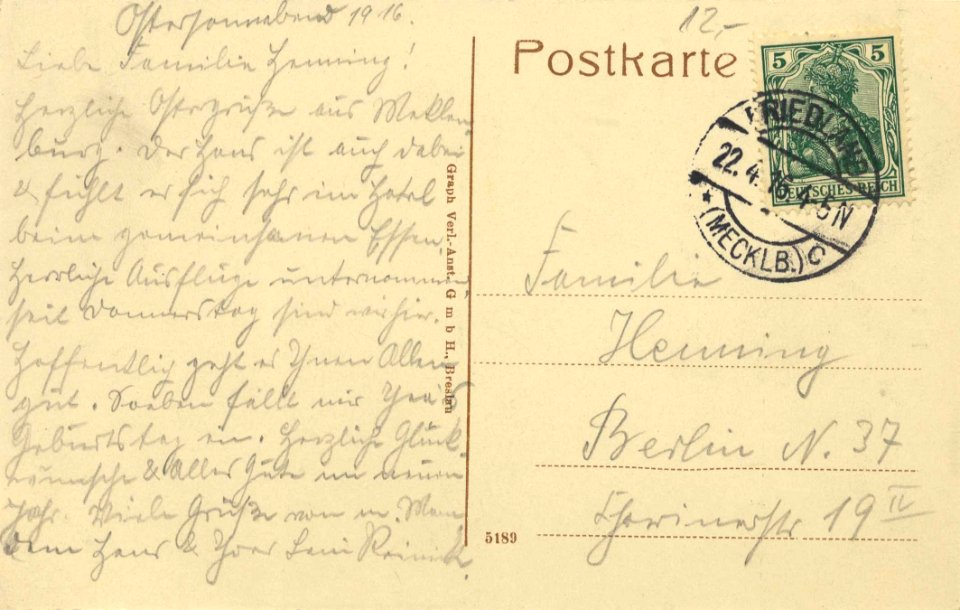 Ostersonnabend 1916.
Liebe Familie Henning!
Herzliche Ostergrüße aus Meklen-
burg. Der Hans ist auch dabei
& fühlt er sich sehr im Hotel
beim gemeinsamen Essen.
Herrliche Ausflüge unternommen,
seit Donnerstag sind wir hier.
Hoffentlich geht es Ihnen Allen
gut. Soeben fällt mir
Geburtstag ein. Herzliche Glück-
wünsche & Alles Gute im neuen
Jahr. Viele Grüße von m. Mann
dem Hans & Ihrer Leni
12,-
Postkarte
5 5
DEUTSCHES REICH
FRIEDLAND
22.4.16 4-5N
* (MECKLB.) c
Graph Verl.-Anst. G m b H., Breslau
Familie
Henning
Berlin N. 37
19 IV
5189